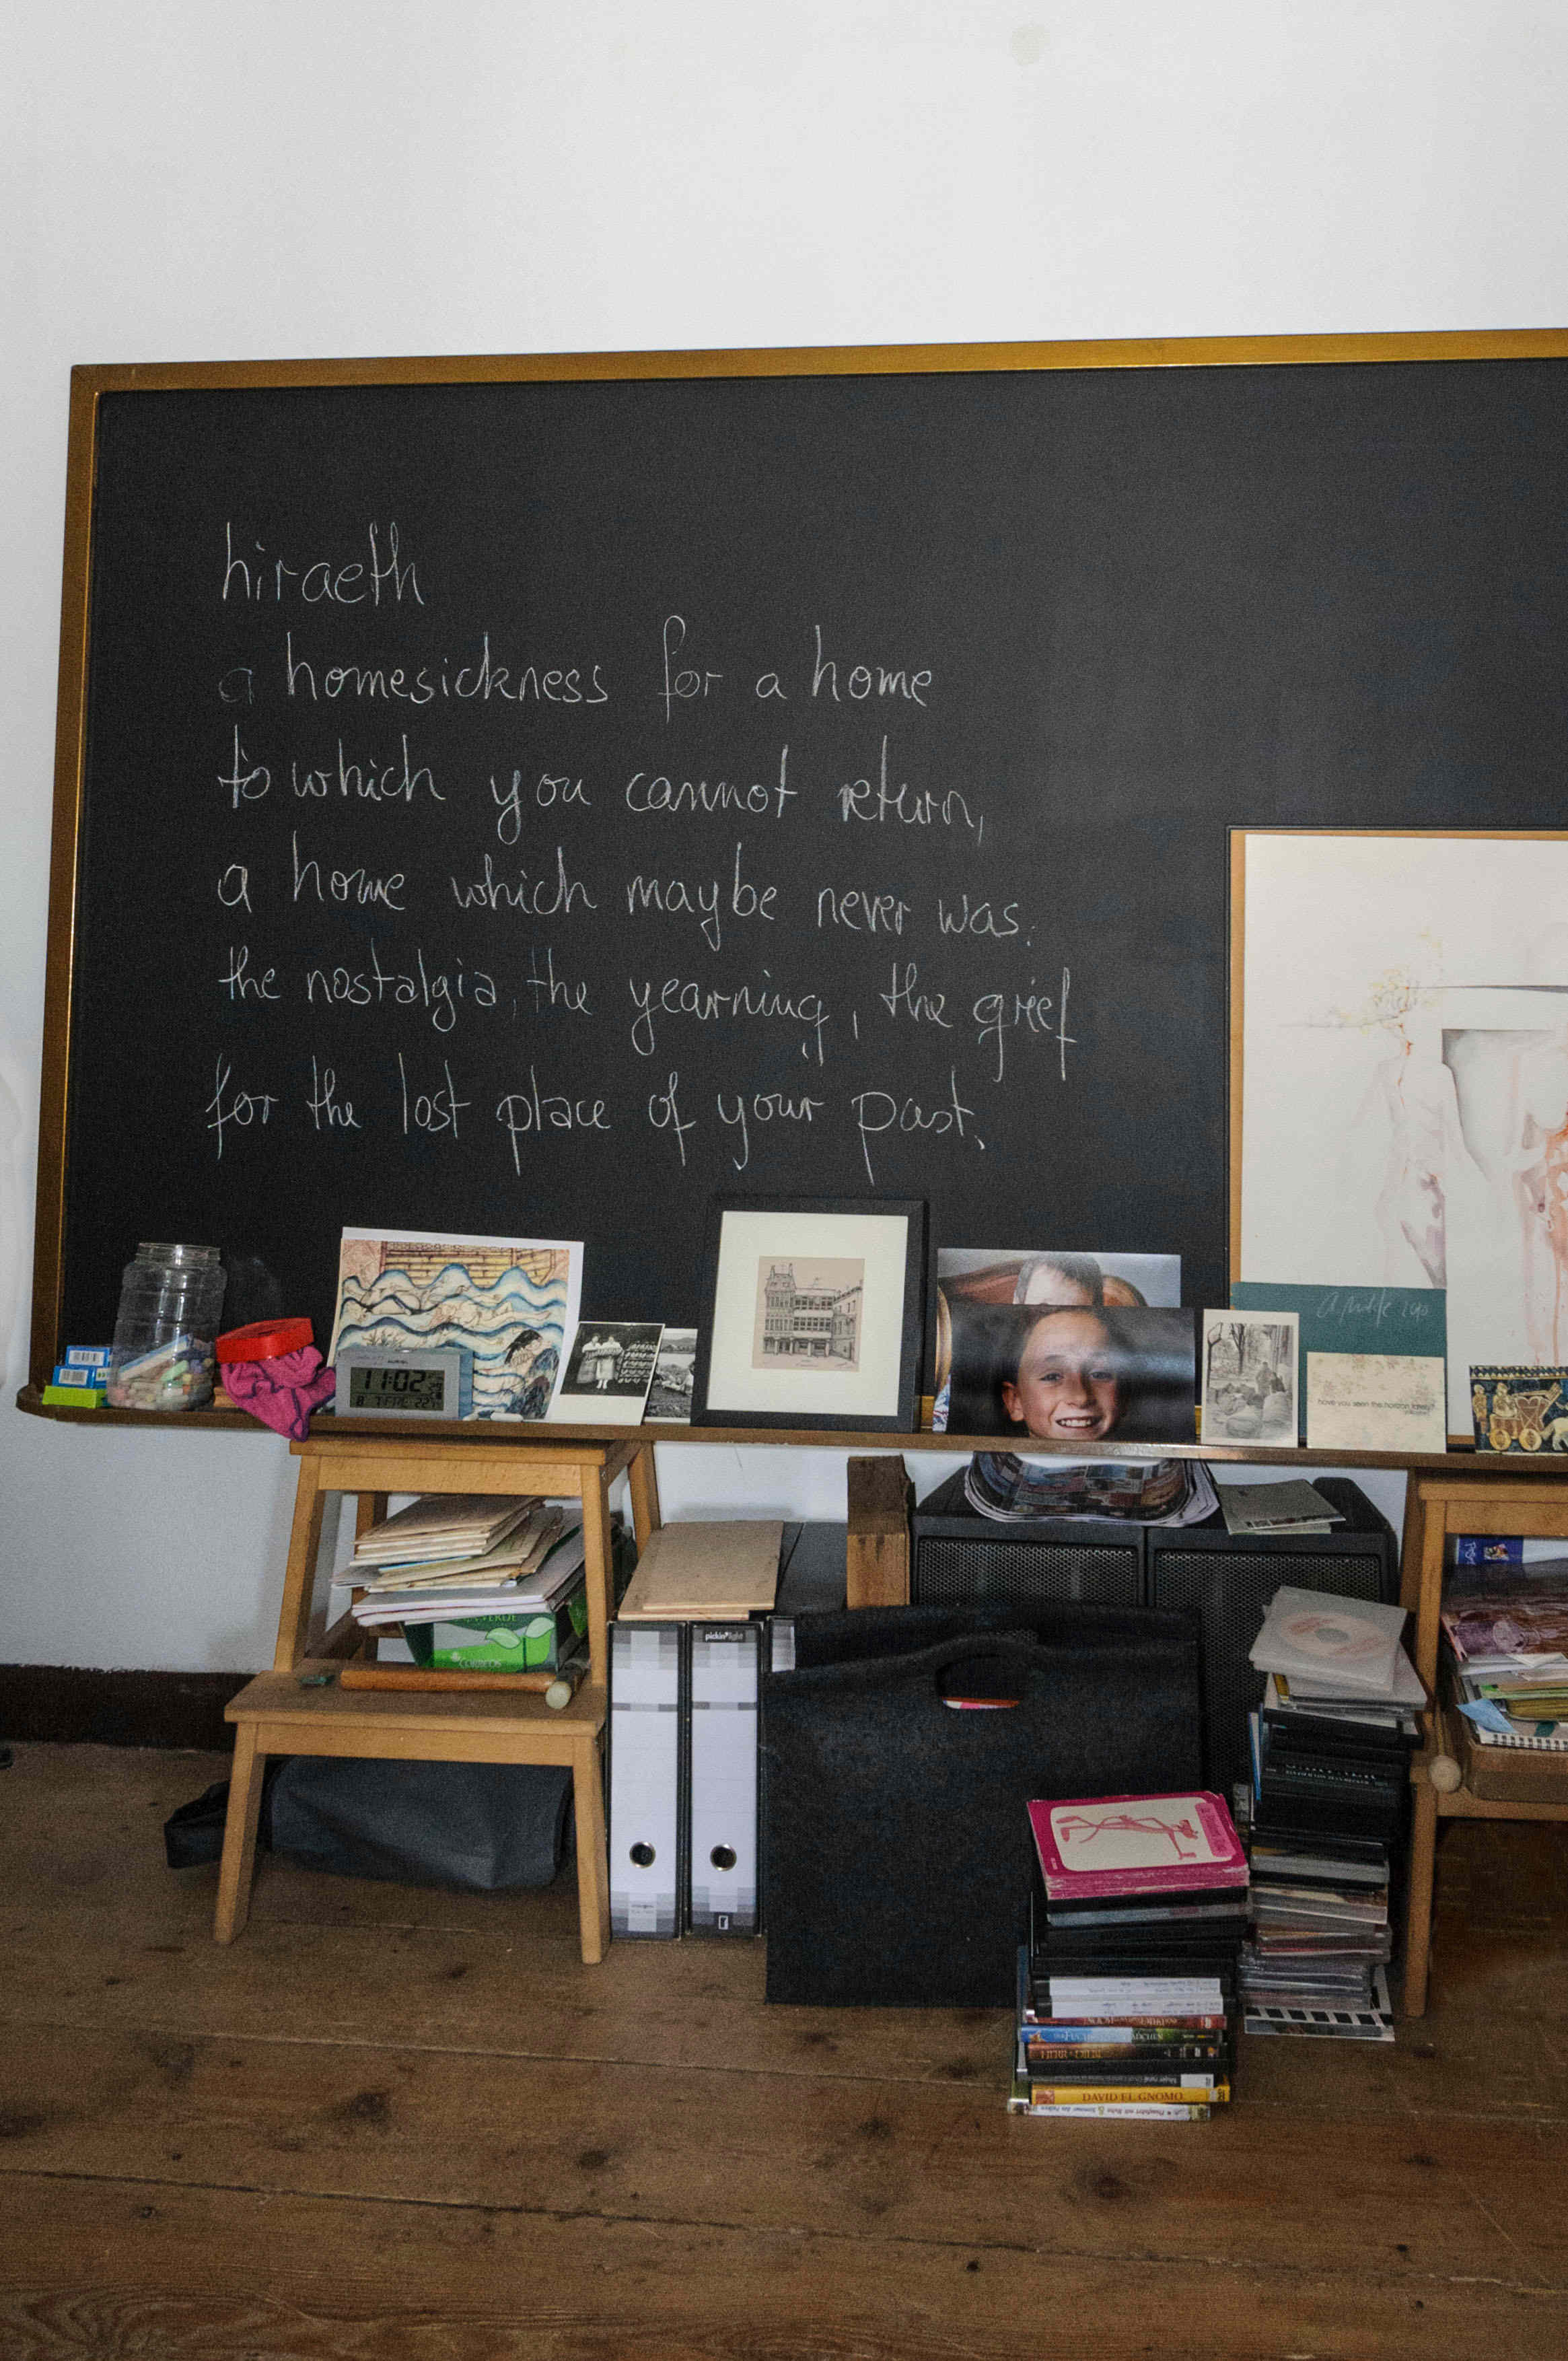 hiraeth
a homesickness for a home
to which you cannot return,
a home which maybe never was:
the nostalgia, the yearning, the grief
for the lost place of your past.
11:02
have you seen the horizon lately?
DAVID EL GNOMO